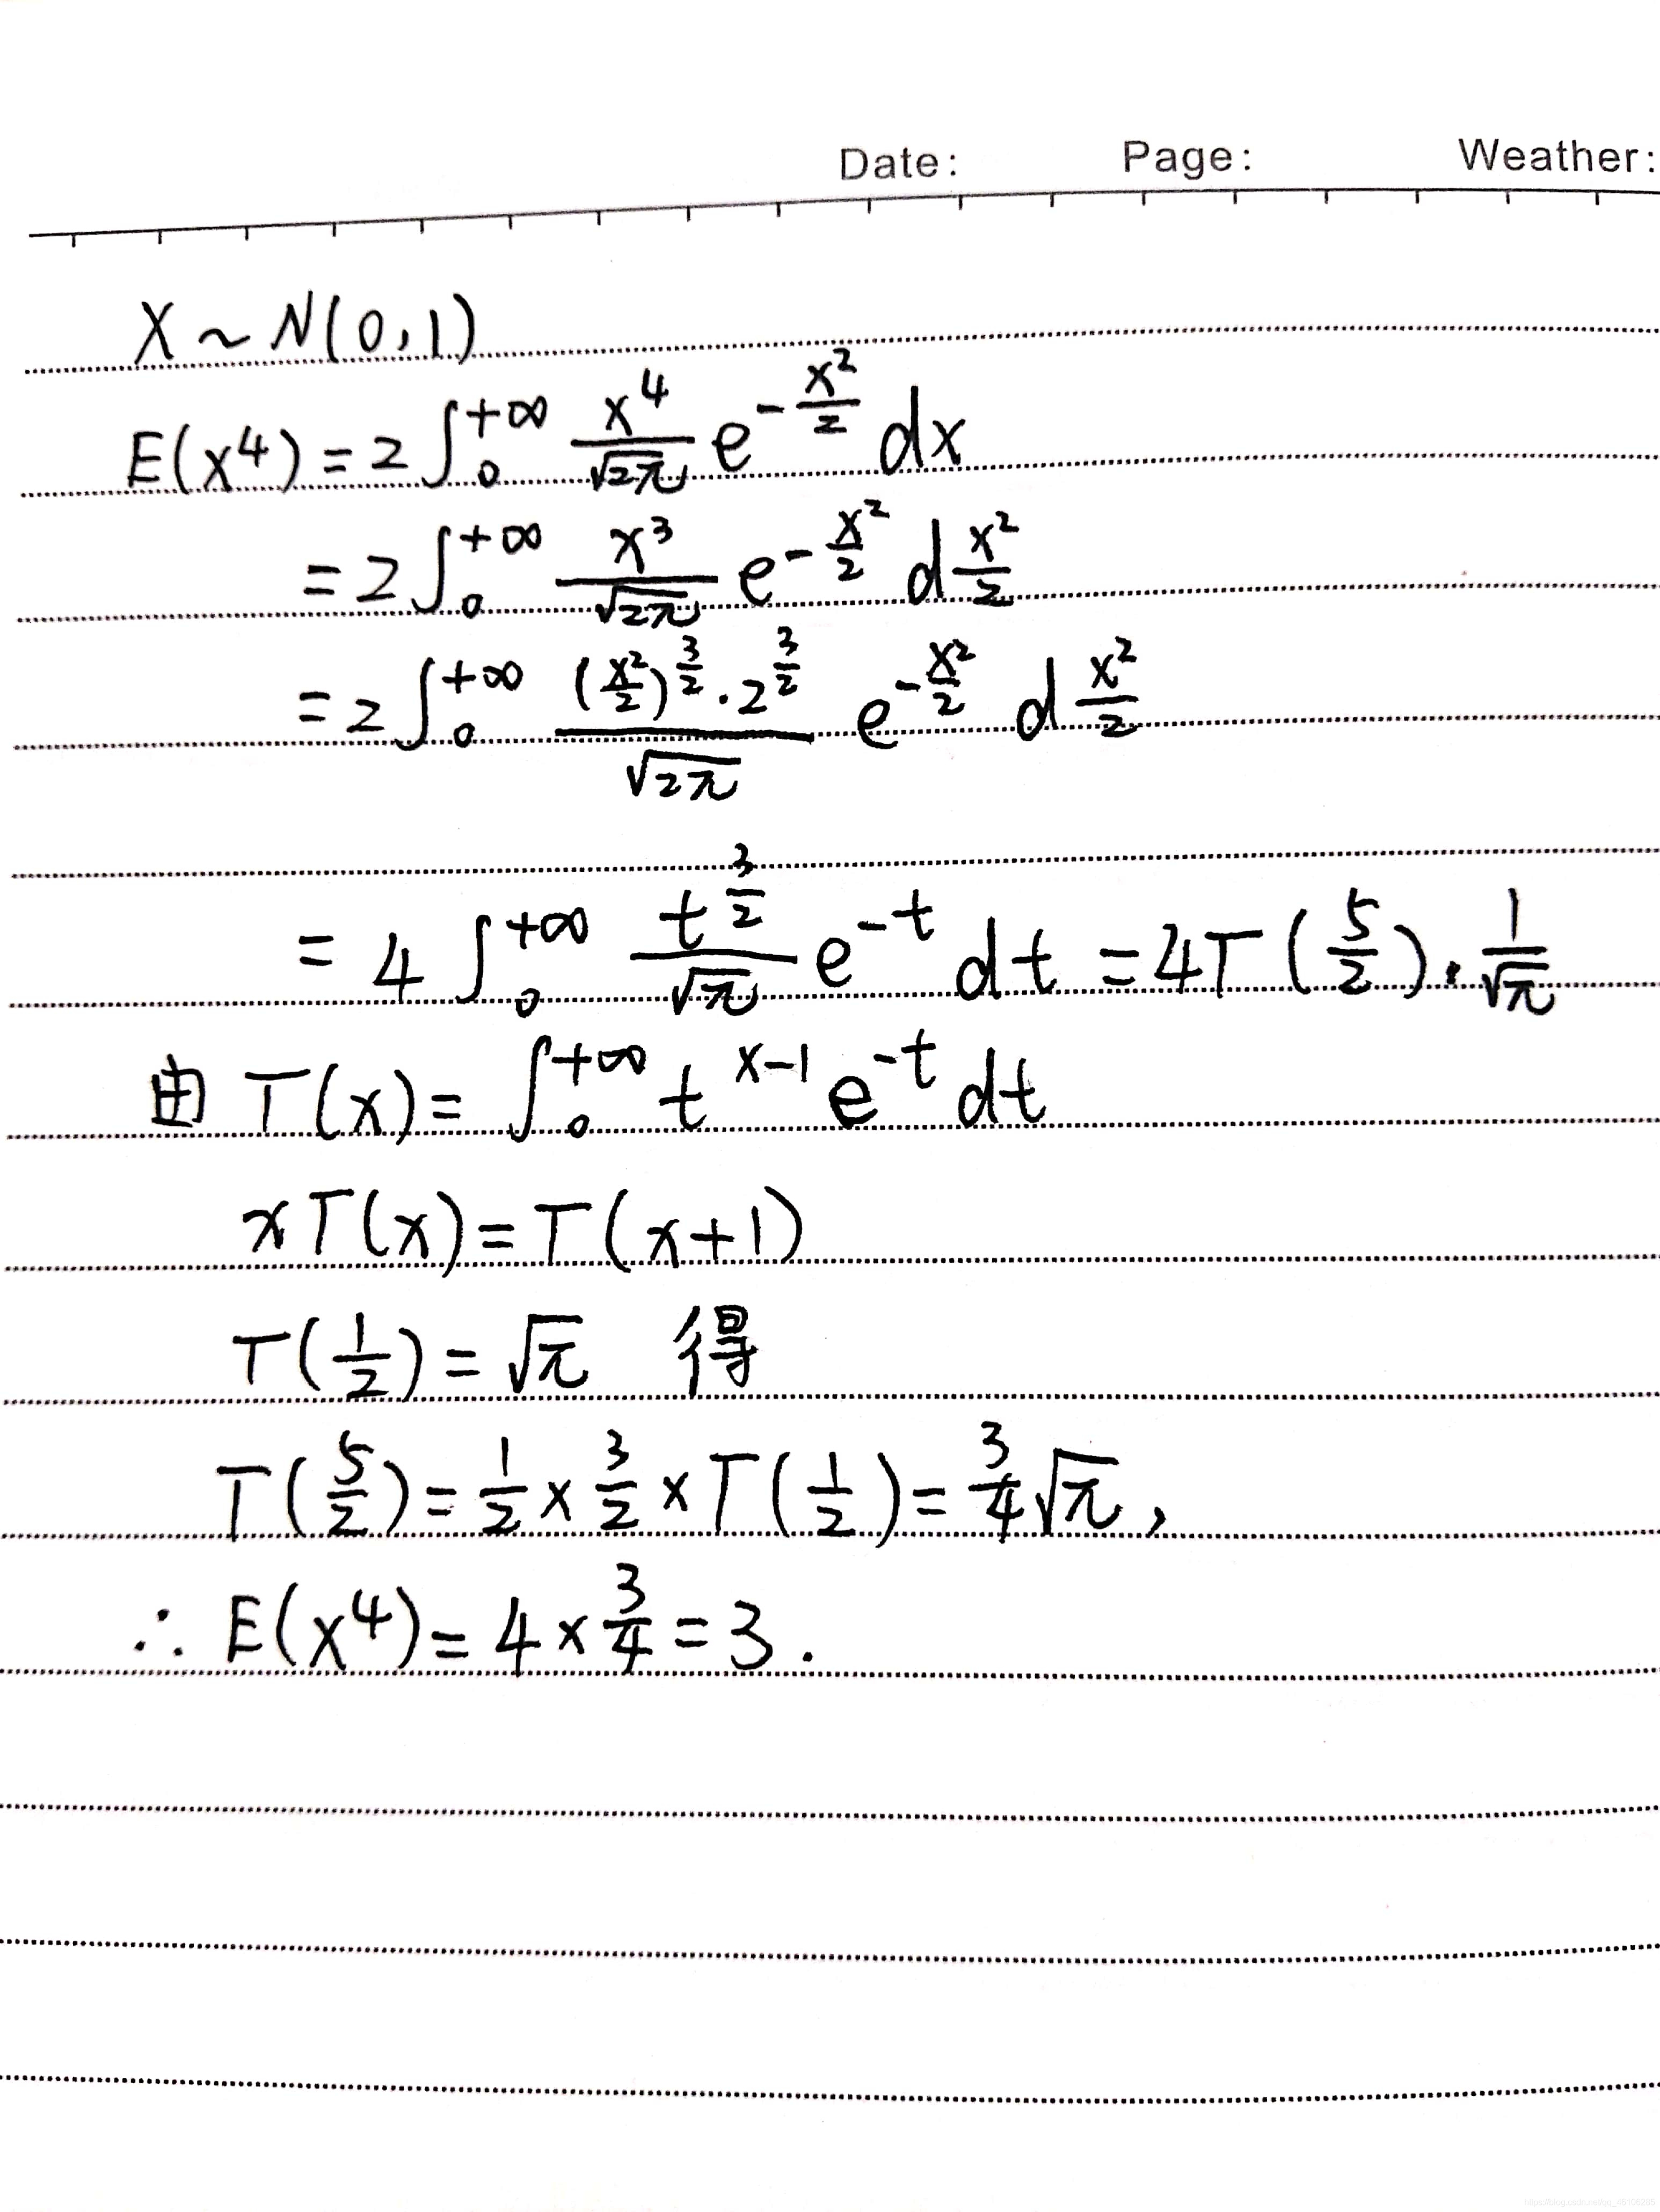 Date: Page: Weather:
X ~ N(0,1)
E(x⁴) = 2 ∫₀^{+∞} \frac{x⁴}{\sqrt{2π}} e^{-\frac{x²}{2}} dx
= 2 ∫₀^{+∞} \frac{x³}{\sqrt{2π}} e^{-\frac{x²}{2}} d\frac{x²}{2}
= 2 ∫₀^{+∞} \frac{(\frac{x²}{2})^{\frac{3}{2}} · 2^{\frac{3}{2}}}{\sqrt{2π}} e^{-\frac{x²}{2}} d\frac{x²}{2}
= 4 ∫₀^{+∞} \frac{t^{\frac{3}{2}}}{\sqrt{π}} e^{-t} dt = 4T(\frac{5}{2}) · \frac{1}{\sqrt{π}}
由 T(x) = ∫₀^{+∞} t^{x-1} e^{-t} dt
xT(x) = T(x+1)
T(\frac{1}{2}) = \sqrt{π} 得
T(\frac{5}{2}) = \frac{1}{2} × \frac{3}{2} × T(\frac{1}{2}) = \frac{3}{4}\sqrt{π},
∴ E(x⁴) = 4 × \frac{3}{4} = 3.